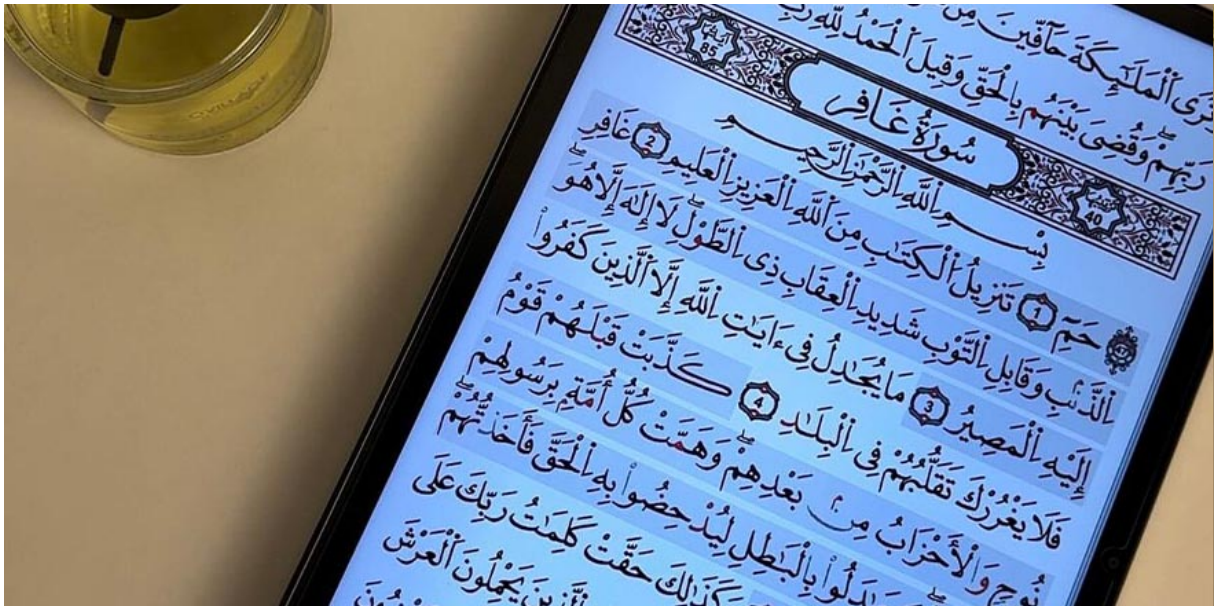 تَرَى ٱلْمَلَٰٓئِكَةَ حَآفِّينَ مِنْ
رَبِّهِمْ ۖ وَقُضِىَ بَيْنَهُم بِٱلْحَقِّ وَقِيلَ ٱلْحَمْدُ لِلَّهِ رَبِّ
40 سُورَةُ غَافِرٍ 85
بِسْمِ ٱللَّهِ ٱلرَّحْمَٰنِ ٱلرَّحِيمِ
حمٓ 1 تَنزِيلُ ٱلْكِتَٰبِ مِنَ ٱللَّهِ ٱلْعَزِيزِ ٱلْعَلِيمِ 2 غَافِرِ
ٱلذَّنۢبِ وَقَابِلِ ٱلتَّوْبِ شَدِيدِ ٱلْعِقَابِ ذِى ٱلطَّوْلِ ۖ لَآ إِلَٰهَ إِلَّا هُوَ ۖ
إِلَيْهِ ٱلْمَصِيرُ 3 مَا يُجَٰدِلُ فِىٓ ءَايَٰتِ ٱللَّهِ إِلَّا ٱلَّذِينَ كَفَرُوا۟
فَلَا يَغْرُرْكَ تَقَلُّبُهُمْ فِى ٱلْبِلَٰدِ 4 كَذَّبَتْ قَبْلَهُمْ قَوْمُ
نُوحٍ وَٱلْأَحْزَابُ مِنۢ بَعْدِهِمْ ۖ وَهَمَّتْ كُلُّ أُمَّةٍۭ بِرَسُولِهِمْ
بِٱلْبَٰطِلِ لِيُدْحِضُوا۟ بِهِ ٱلْحَقَّ فَأَخَذْتُهُمْ ۖ
وَكَذَٰلِكَ حَقَّتْ كَلِمَتُ رَبِّكَ عَلَى
ٱلَّذِينَ يَحْمِلُونَ ٱلْعَرْشَ